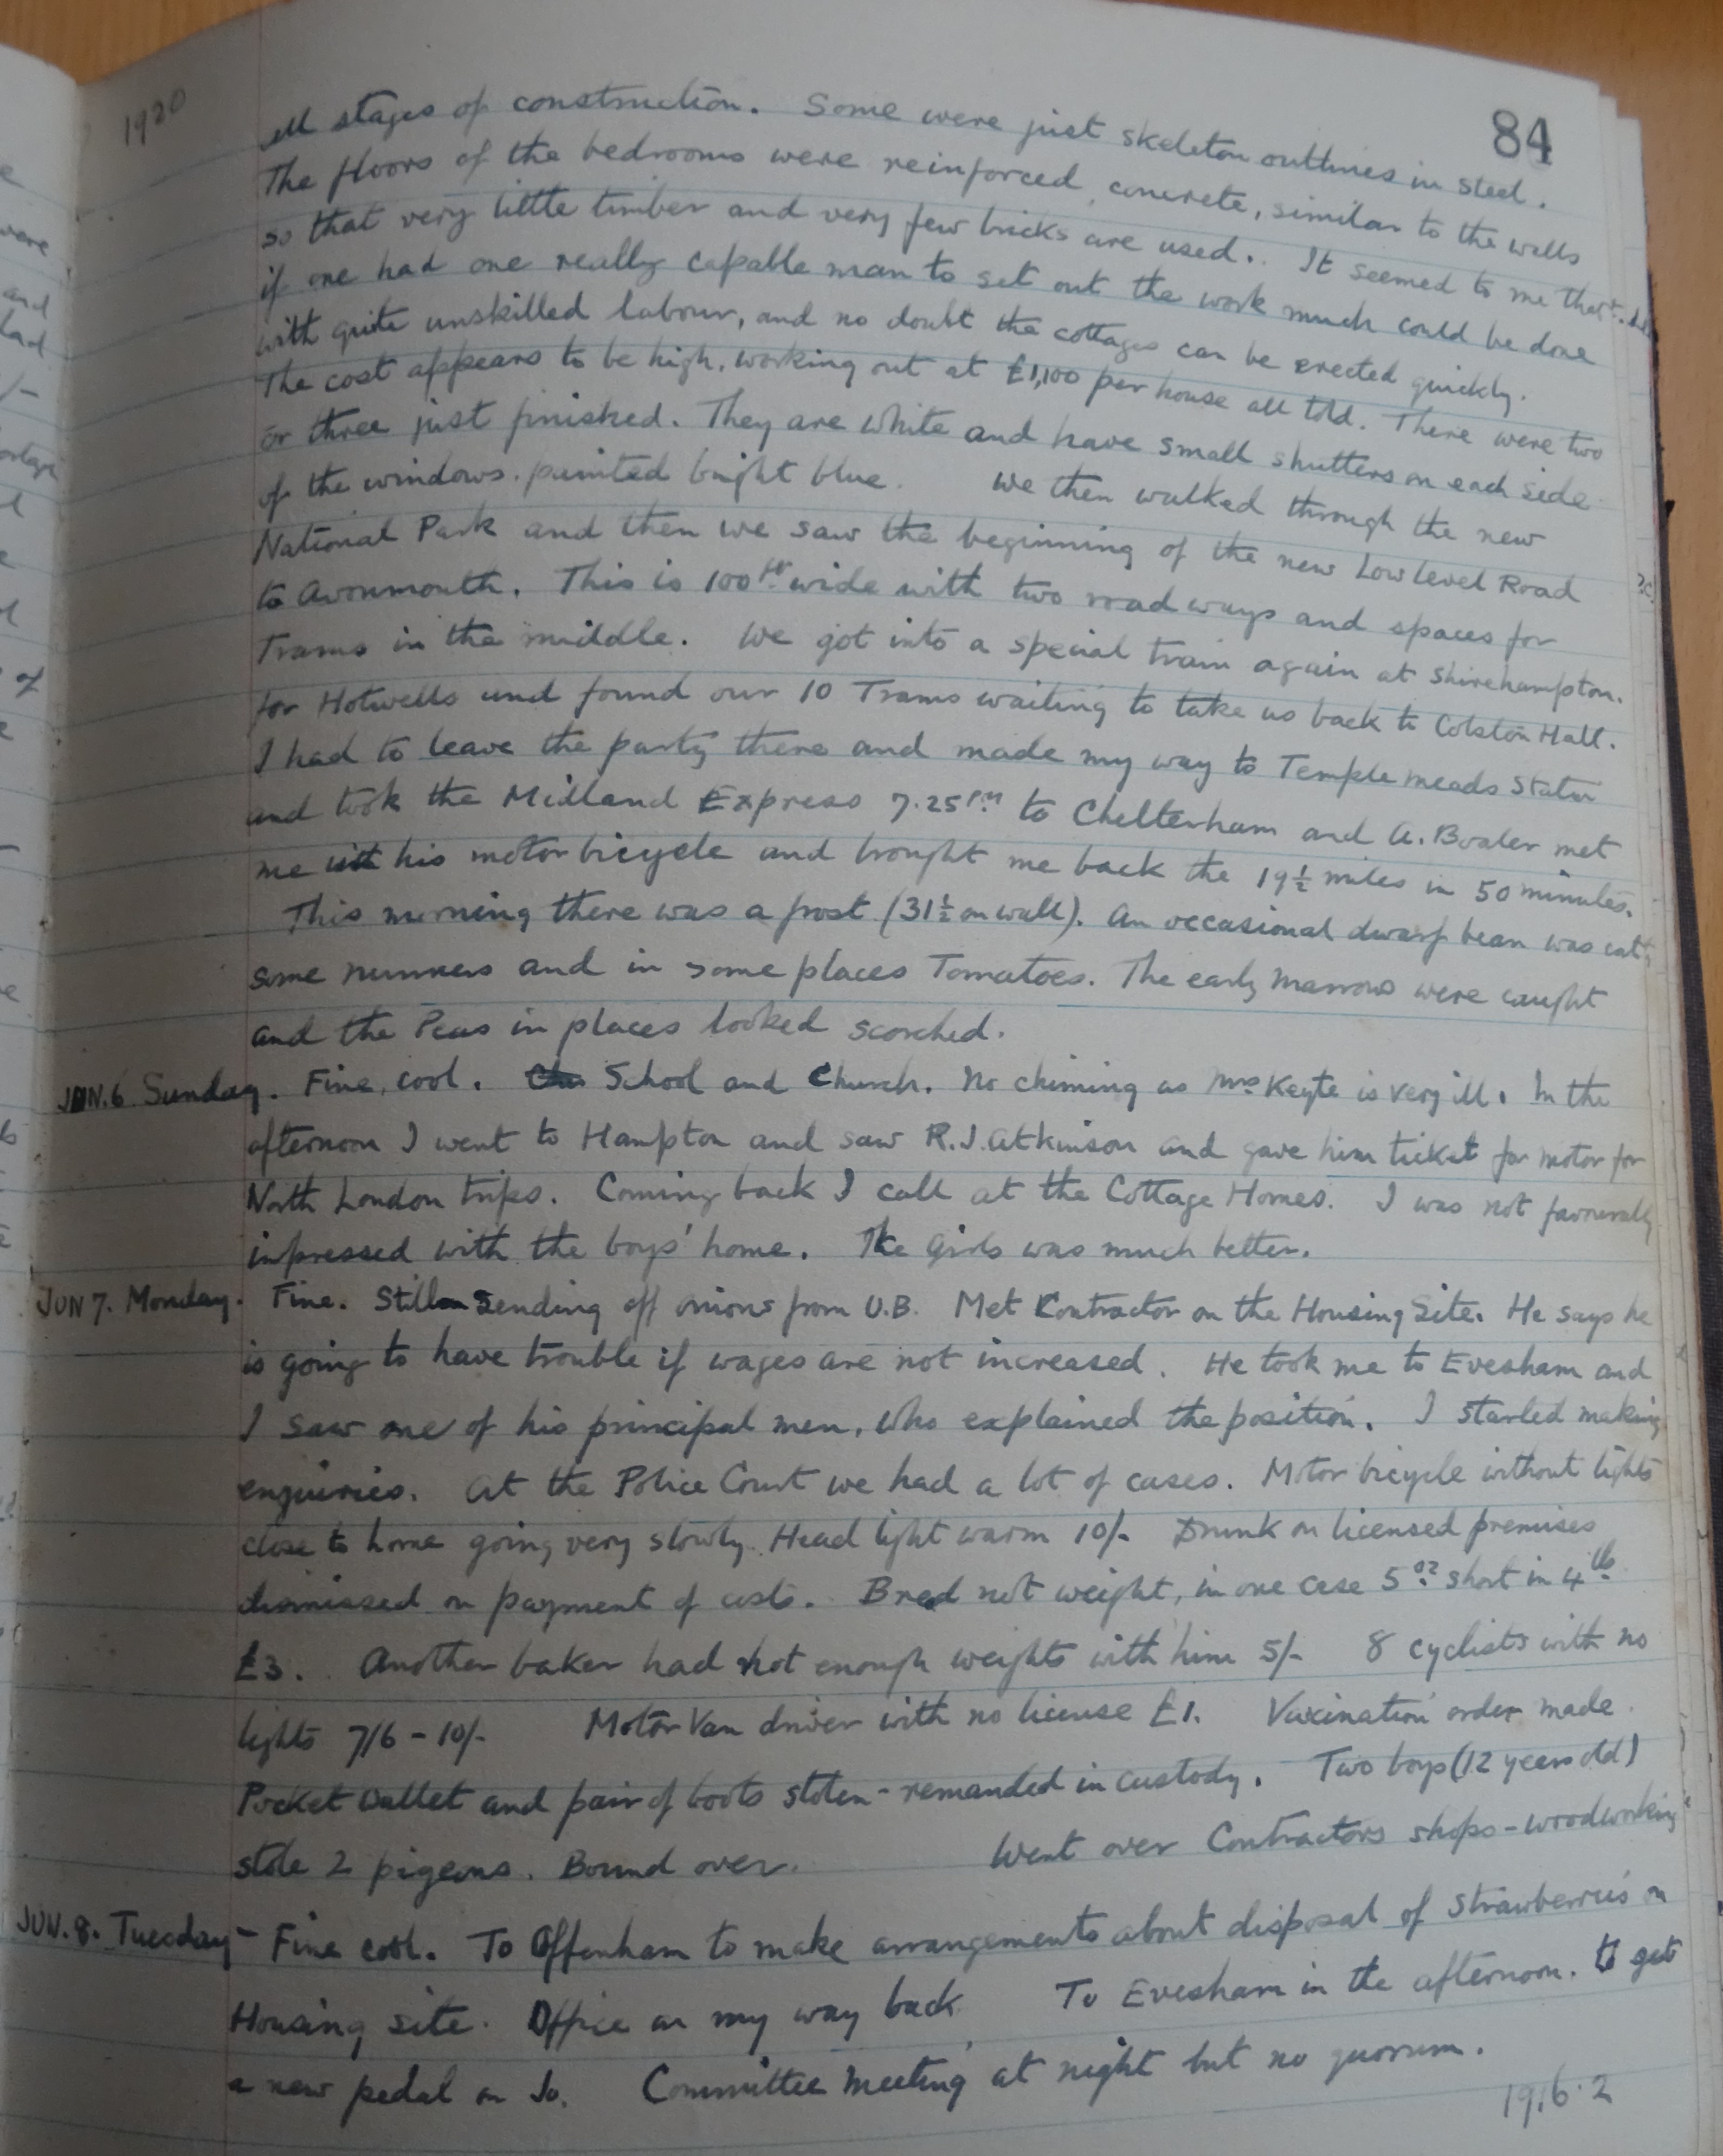 1920
84
all stages of construction. Some were just skeleton outlines in steel.
The floors of the bedrooms were reinforced concrete, similar to the walls
so that very little timber and very few bricks are used. It seemed to me that
if one had one really capable man to set out the work much could be done
with quite unskilled labour, and no doubt the cottages can be erected quickly.
The cost appears to be high, working out at £1,100 per house all told. There were two
or three just finished. They are white and have small shutters on each side
of the windows painted bright blue. We then walked through the new
National Park and then we saw the beginning of the new Low level Road
to Avonmouth. This is 100 ft wide with two road ways and spaces for
Trams in the middle. We got into a special train again at Shirehampton.
for Hotwells and found our 10 Trams waiting to take us back to Colston Hall.
I had to leave the party there and made my way to Temple meads Station
and took the Midland Express 7.25 PM to Cheltenham and A. Bowler met
me with his motor bicycle and brought me back the 19½ miles in 50 minutes.
This morning there was a frost (31½ on wall). An occasional dwarf bean was cut
some runners and in some places Tomatoes. The early marrows were caught
and the Peas in places looked scorched.
JUN. 6 Sunday. Fine, cool. School and Church. No chiming as Mrs Keyte is very ill. In the
afternoon I went to Hampton and saw R.J. Atkinson and gave him ticket for motor for
North London trips. Coming back I call at the Cottage Homes. I was not favourably
impressed with the boys' home. The Girls was much better.
JUN 7. Monday. Fine. Still sending off onions from U.B. Met Contractor on the Housing Site. He says he
is going to have trouble if wages are not increased. He took me to Evesham and
I saw one of his principal men, who explained the position. I started making
enquiries. At the Police Court we had a lot of cases. Motor bicycle without lights
close to home going very slowly. Head light warm 10/- Drunk on licensed premises
dismissed on payment of costs. Bread not weight, in one case 5 oz short in 4 lb.
£3. Another baker had not enough weights with him 5/- 8 cyclists with no
lights 7/6 - 10/- Motor Van driver with no license £1. Vaxination order made.
Pocket wallet and pair of boots stolen - remanded in custody. Two boys (12 years old)
stole 2 pigeons. Bound over. Went over Contractors shops - woodworking
JUN. 8. Tuesday - Fine cool. To Offenham to make arrangements about disposal of strawberries on
Housing site. Office on my way back. To Evesham in the afternoon. to get
a new pedal on Jo. Committee Meeting at night but no quorum.
1916.2